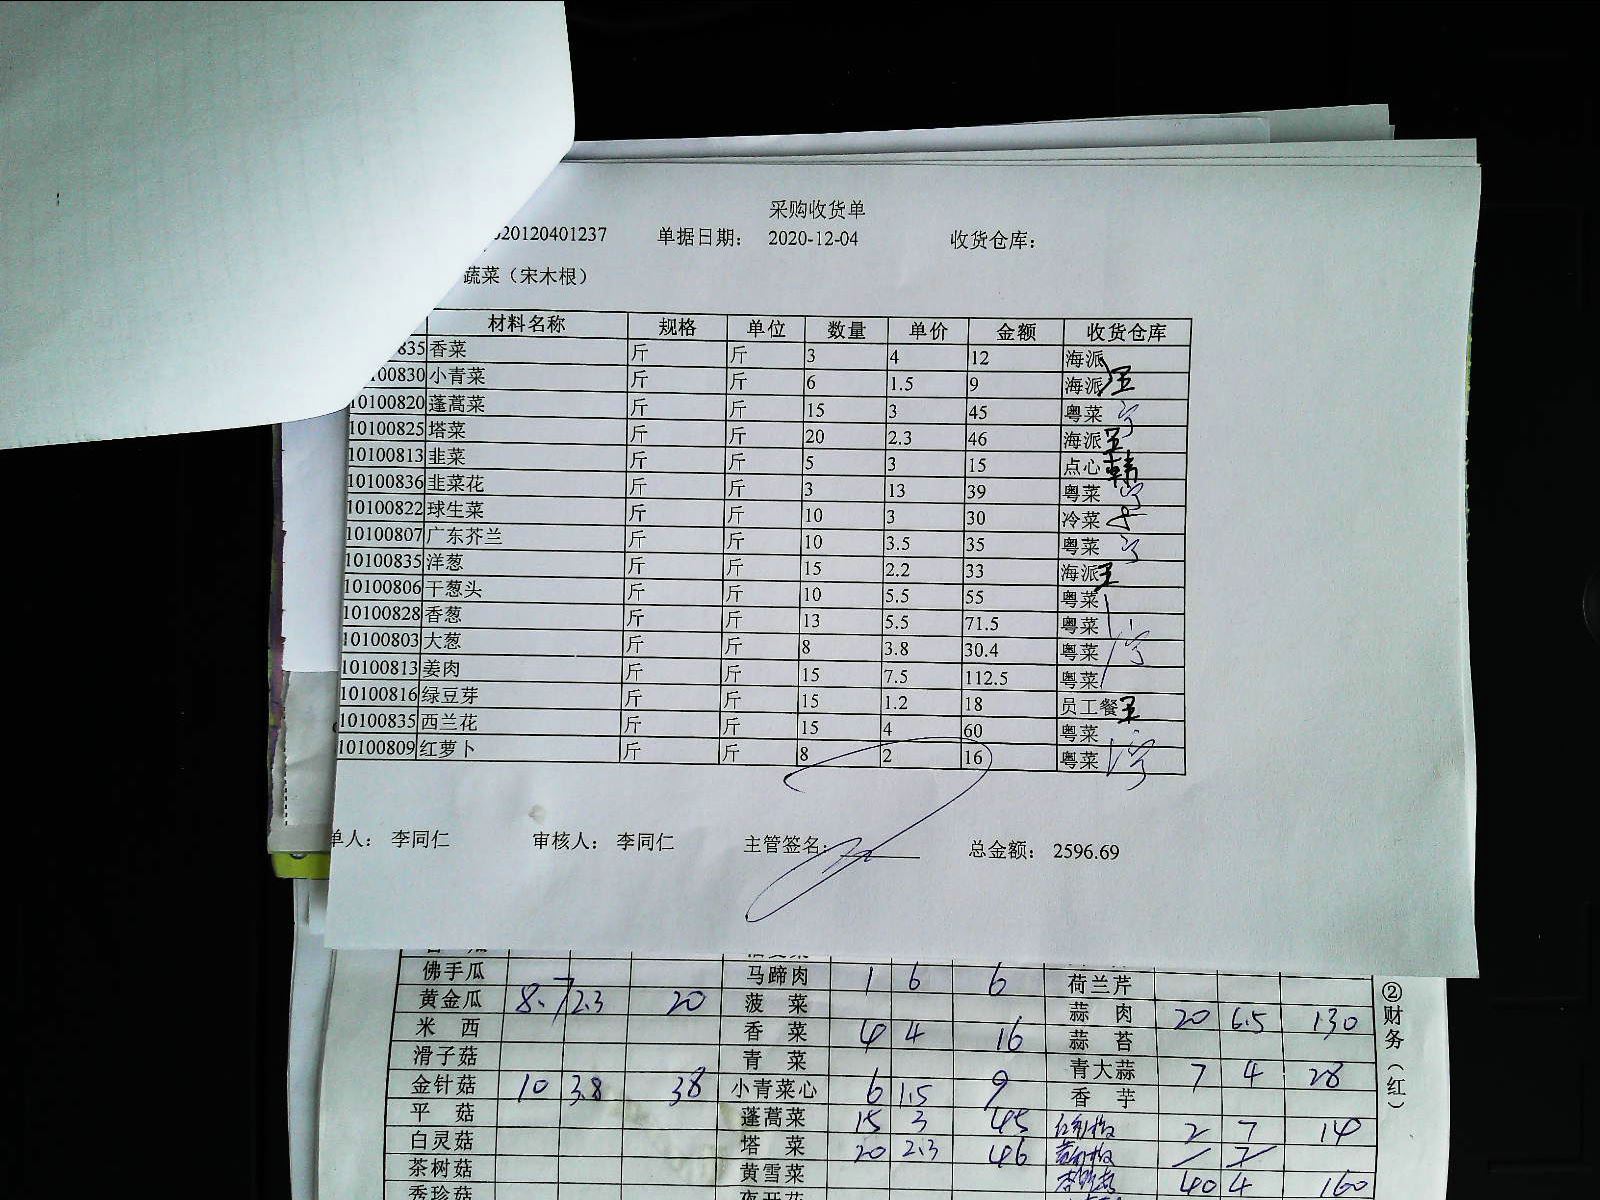 采购收货单
020120401237 单据日期： 2020-12-04 收货仓库：
蔬菜（宋木根）
材料名称 规格 单位 数量 单价 金额 收货仓库
835 香菜 斤 斤 3 4 12 海派
100830 小青菜 斤 斤 6 1.5 9 海派 王
10100820 蓬蒿菜 斤 斤 15 3 45 粤菜
10100825 塔菜 斤 斤 20 2.3 46 海派 王
10100813 韭菜 斤 斤 5 3 15 点心 韩
10100836 韭菜花 斤 斤 3 13 39 粤菜
10100822 球生菜 斤 斤 10 3 30 冷菜
10100807 广东芥兰 斤 斤 10 3.5 35 粤菜
10100835 洋葱 斤 斤 15 2.2 33 海派 王
10100806 干葱头 斤 斤 10 5.5 55 粤菜
10100828 香葱 斤 斤 13 5.5 71.5 粤菜
10100803 大葱 斤 斤 8 3.8 30.4 粤菜
10100813 姜肉 斤 斤 15 7.5 112.5 粤菜
10100816 绿豆芽 斤 斤 15 1.2 18 员工餐 王
10100835 西兰花 斤 斤 15 4 60 粤菜
10100809 红萝卜 斤 斤 8 2 16 粤菜
单人： 李同仁 审核人： 李同仁 主管签名： 总金额： 2596.69
佛手瓜 马蹄肉 1 6 6 荷兰芹
黄金瓜 8.7 2.3 20 菠菜 蒜肉 20 6.5 130
米西 香菜 4 4 16 蒜苔
滑子菇 青菜 青大蒜 7 4 28
金针菇 10 3.8 38 小青菜心 6 1.5 9 香芋
平菇 蓬蒿菜 15 3 45 2 7 14
白灵菇 塔菜 20 2.3 46 7
茶树菇 黄雪菜 40 4 160
秀珍菇
②财务（红）